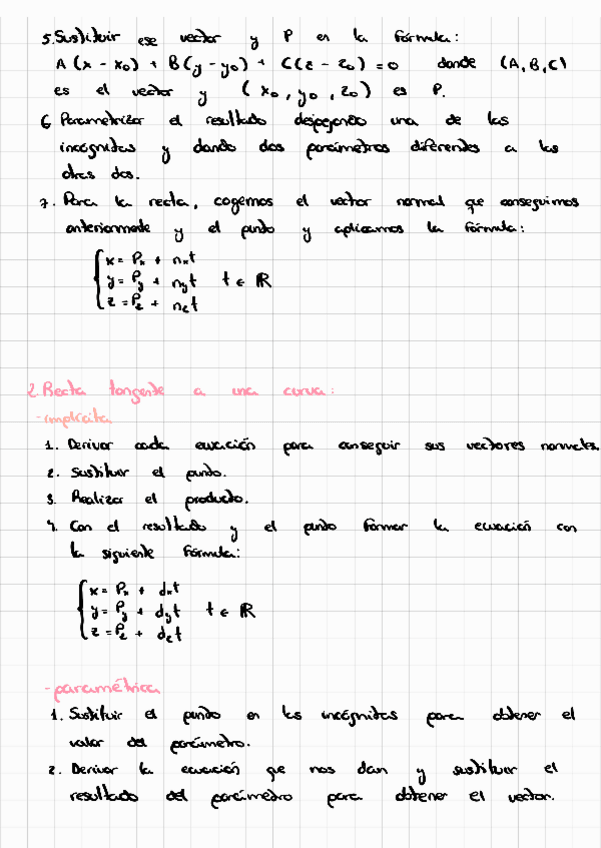 5. Sustituir ese vector y P en la fórmula:
A(x - x₀) + B(y - y₀) + C(z - z₀) = 0 donde (A, B, C)
es el vector y (x₀, y₀, z₀) es P.
6 Parametrizar el resultado despejando una de las
incógnitas y dando dos parámetros diferentes a las
otras dos.
7. Para la recta, cogemos el vector normal que conseguimos
anteriormente y el punto y aplicamos la fórmula:
x = Pₓ + nₓt
y = Pᵧ + nᵧt t ∈ ℝ
z = P_z + n_z t
2. Recta tangente a una curva:
- implícita
1. Derivar cada ecuación para conseguir sus vectores normales.
2. Sustituir el punto.
3. Realizar el producto.
4. Con el resultado y el punto formar la ecuación con
la siguiente fórmula:
x = Pₓ + dₓt
y = Pᵧ + dᵧt t ∈ ℝ
z = P_z + d_z t
- paramétrica
1. Sustituir el punto en las incógnitas para obtener el
valor del parámetro.
2. Derivar la ecuación que nos dan y sustituir el
resultado del parámetro para obtener el vector.